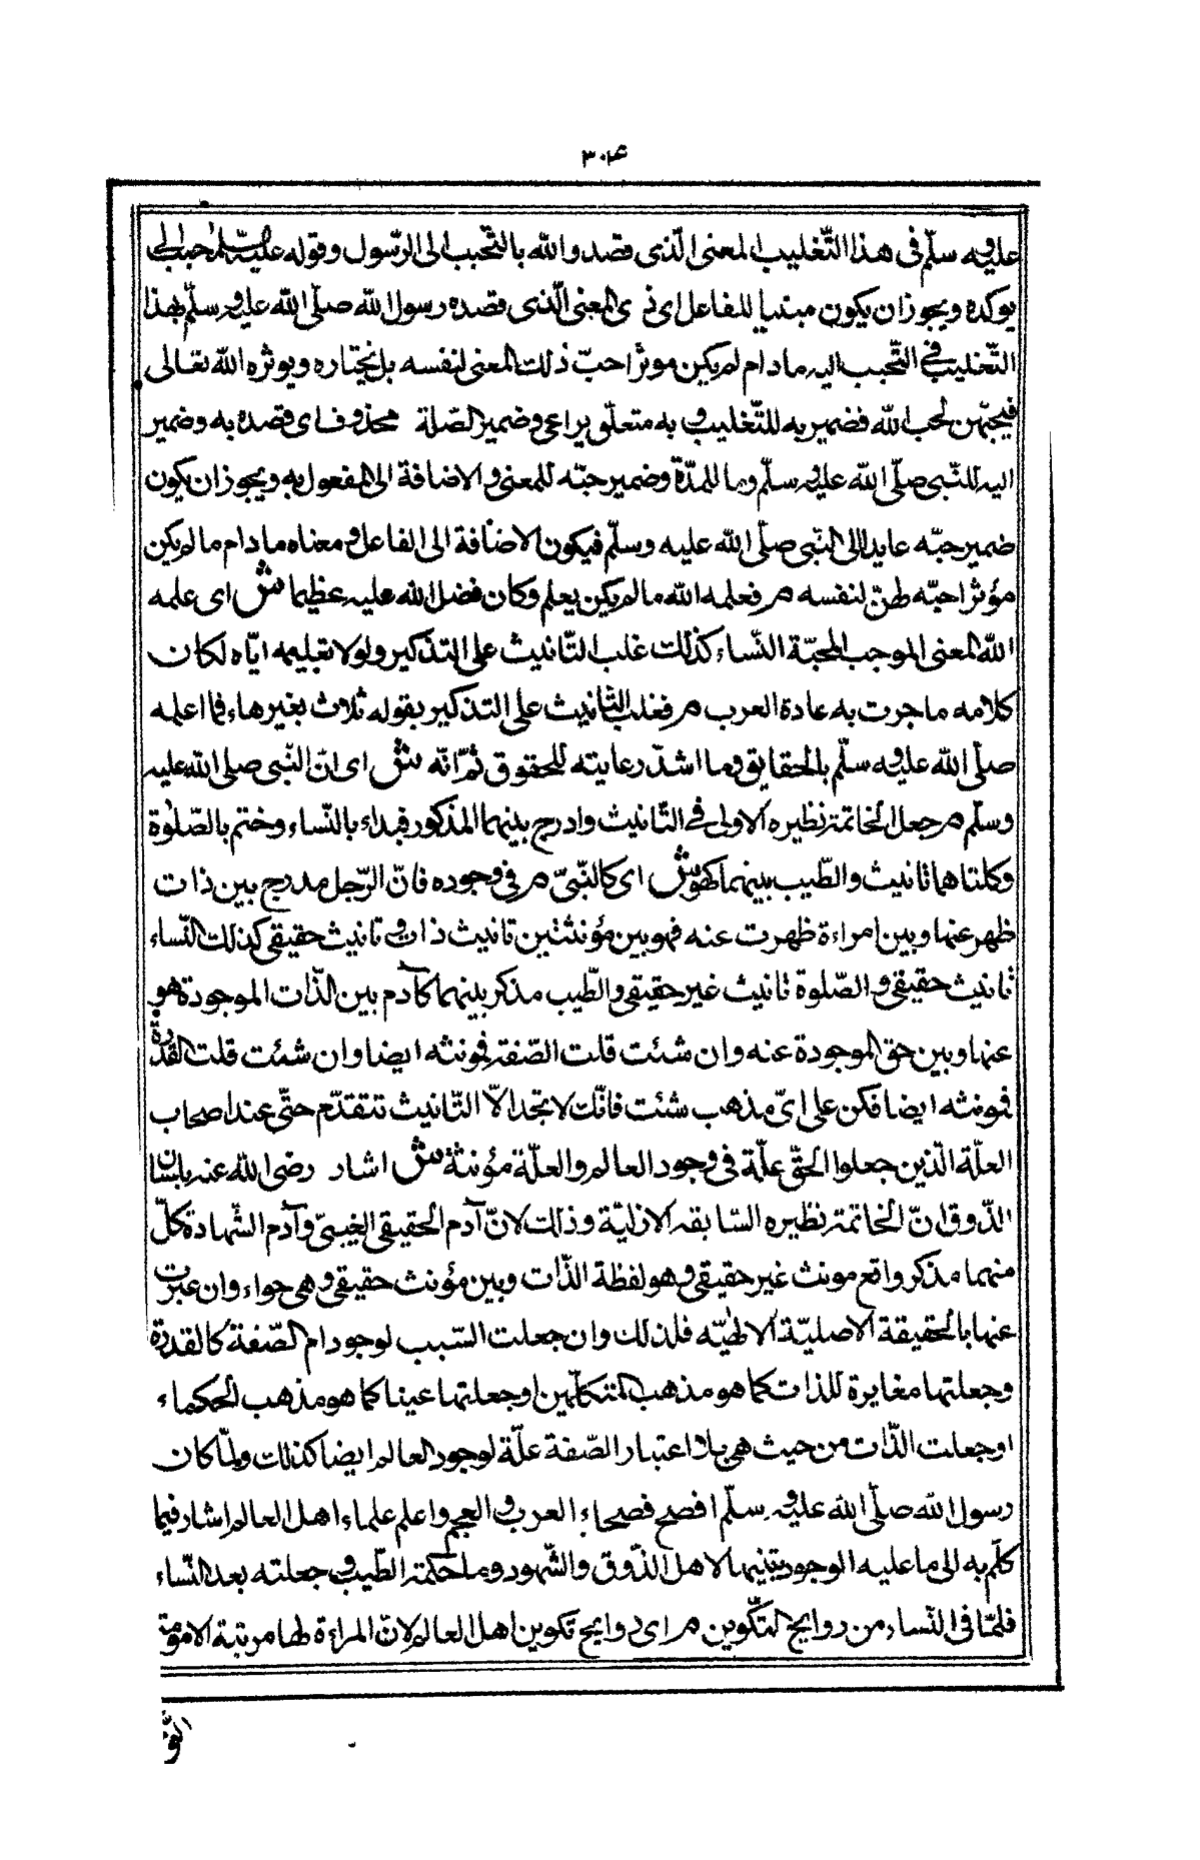 ٣٠۴
عليه و سلّم فى هذا التّغليب المعنى الّذى قصد والله بالتّحبب الى الرّسول و قوله عليه السّلم احبب الى
يوكده ويجوز ان يكون مبنيا للفاعل اى نرى المعنى الّذى قصده رسول الله صلّى الله عليه و سلّم بهذا
التّغليب فى التّحبب اليه مادام لم يكن موثرا حبّ ذلك المعنى لنفسه بل يختاره ويوثره الله تعالى
فيحبّهن لحب الله فضمير به للتّغليب و به متعلّق يراعى وضمير الصّلة محذوف اى قصده به وضمير
اليه للنّبى صلّى الله عليه و سلّم وما للمدّة وضمير حبّه للمعنى و الاضافة الى المفعول به ويجوز ان يكون
ضمير حبّه عايدا الى النّبى صلّى الله عليه وسلّم فيكون الاضافة الى الفاعل و معناه مادام ما لم يكن
مؤثرا حبّه لهنّ لنفسه م فعلمه الله ما لم يكن يعلم وكان فضل الله عليه عظيما ش اى علمه
الله المعنى الموجب لمحبّة النّساء كذلك غلب التّانيث على التذكير ولولا تعليمه ايّاه لكان
كلامه ما جرت به عادة العرب م فغلب التّانيث على التذكير بقوله ثلاث بغير هاء فما اعلمه
صلّى الله عليه و سلّم بالحقايق وما اشدّ رعايته للحقوق ثمّ انّه ش اى انّ النّبى صلى الله عليه
وسلّم م جعل الخاتمة نظيره الاولى فى التّانيث وادرج بينهما المذكور فبداء بالنّساء وختم بالصّلوة
وكلتاهما تانيث والطّيب بينهما كهو ش اى كالنّبىّ م فى وجوده فانّ الرّجل مدرج بين ذات
ظهر عنها وبين امراءة ظهرت عنه فهو بين مؤنثتين تانيث ذات و تانيث حقيقى كذلك النّساء
تانيث حقيقى و الصّلوة تانيث غير حقيقى والطّيب مذكر بينهما كآدم بين الذّات الموجودة هو
عنها وبين حق الموجودة عنه وان شئت قلت الصّفة فمونثه ايضا وان شئت قلت القدرة
فمونثه ايضا فكن على اىّ مذهب شئت فانّك لا تجد الاّ التّانيث تتقدّم حتّى عند اصحاب
العلّة الّذين جعلوا الحقّ علّة فى وجود العالم والعلّة مؤنثة ش اشار رضى الله عنه بلسان
الذّوق انّ الخاتمة نظيره السّابقه الازليّة وذلك لانّ آدم الحقيقى الغيبىّ وآدم الشّهادة كلّ
منهما مذكر واقع مونث غير حقيقى و هو لفظة الذّات وبين مؤنث حقيقى و هى حواء وان عبرت
عنها بالحقيقة الاصليّة الالهيّه فلذلك وان جعلت السّبب لوجود ام الصّفة كالقدرة
وجعلتها مغايرة للذات كما هو مذهب المتكلّمين او جعلتها عينا كما هو مذهب الحكماء
او جعلت الذّات من حيث هى بلا اعتبار الصّفة علّة لوجود العالم ايضا كذلك ولمّا كان
رسول الله صلّى الله عليه و سلّم افصح فصحاء العرب و العجم واعلم علماء اهل العالم اشار فيما
كلّم به الى ما عليه الوجود تنبيها لاهل الذّوق والشّهود و ما حكمة الطّيب و جعلته بعد النّساء
فلمّا فى النّساء من روايح التّكوين م اى روايح تكوين اهل العالم لانّ المراءة لها مرتبة الامومة